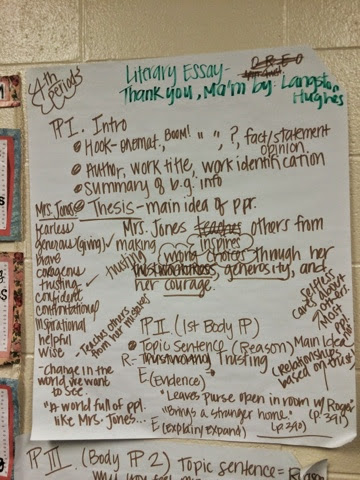 4th
periods
Literary Essay-
Thank you, Ma'm by: Langston
Hughes
D R E O
IP I. Intro
Hook-onomat., Boom! " ", ?, fact/statement
opinion
Author, work title, work identification
Summary of b.g. info
Thesis - main idea of ppr.
Mrs. Jones
fearless
generous (giving)
brave
courageous
trusting
confident
confrontational
inspirational
helpful
wise
Mrs. Jones teaches others from
making inspires
trusting wrong choices through her
trustworthiness, generosity, and
her courage.
Teaches others
from her mistakes
change in the
world we want
to see.
"A world full of ppl.
like Mrs. Jones...
selfless
cares about
others
most
IP II (1st Body IP)
Topic sentence (Reason) Main Idea
R- Trustworthy Trusting
(relationships
based on trust)
E (Evidence)
"Leaves purse open in room w/ Roger"
(p. 391)
"Brings a stranger home."
(p. 390)
E (explain/expand)
IP III. (Body IP 2) Topic sentence = Reason